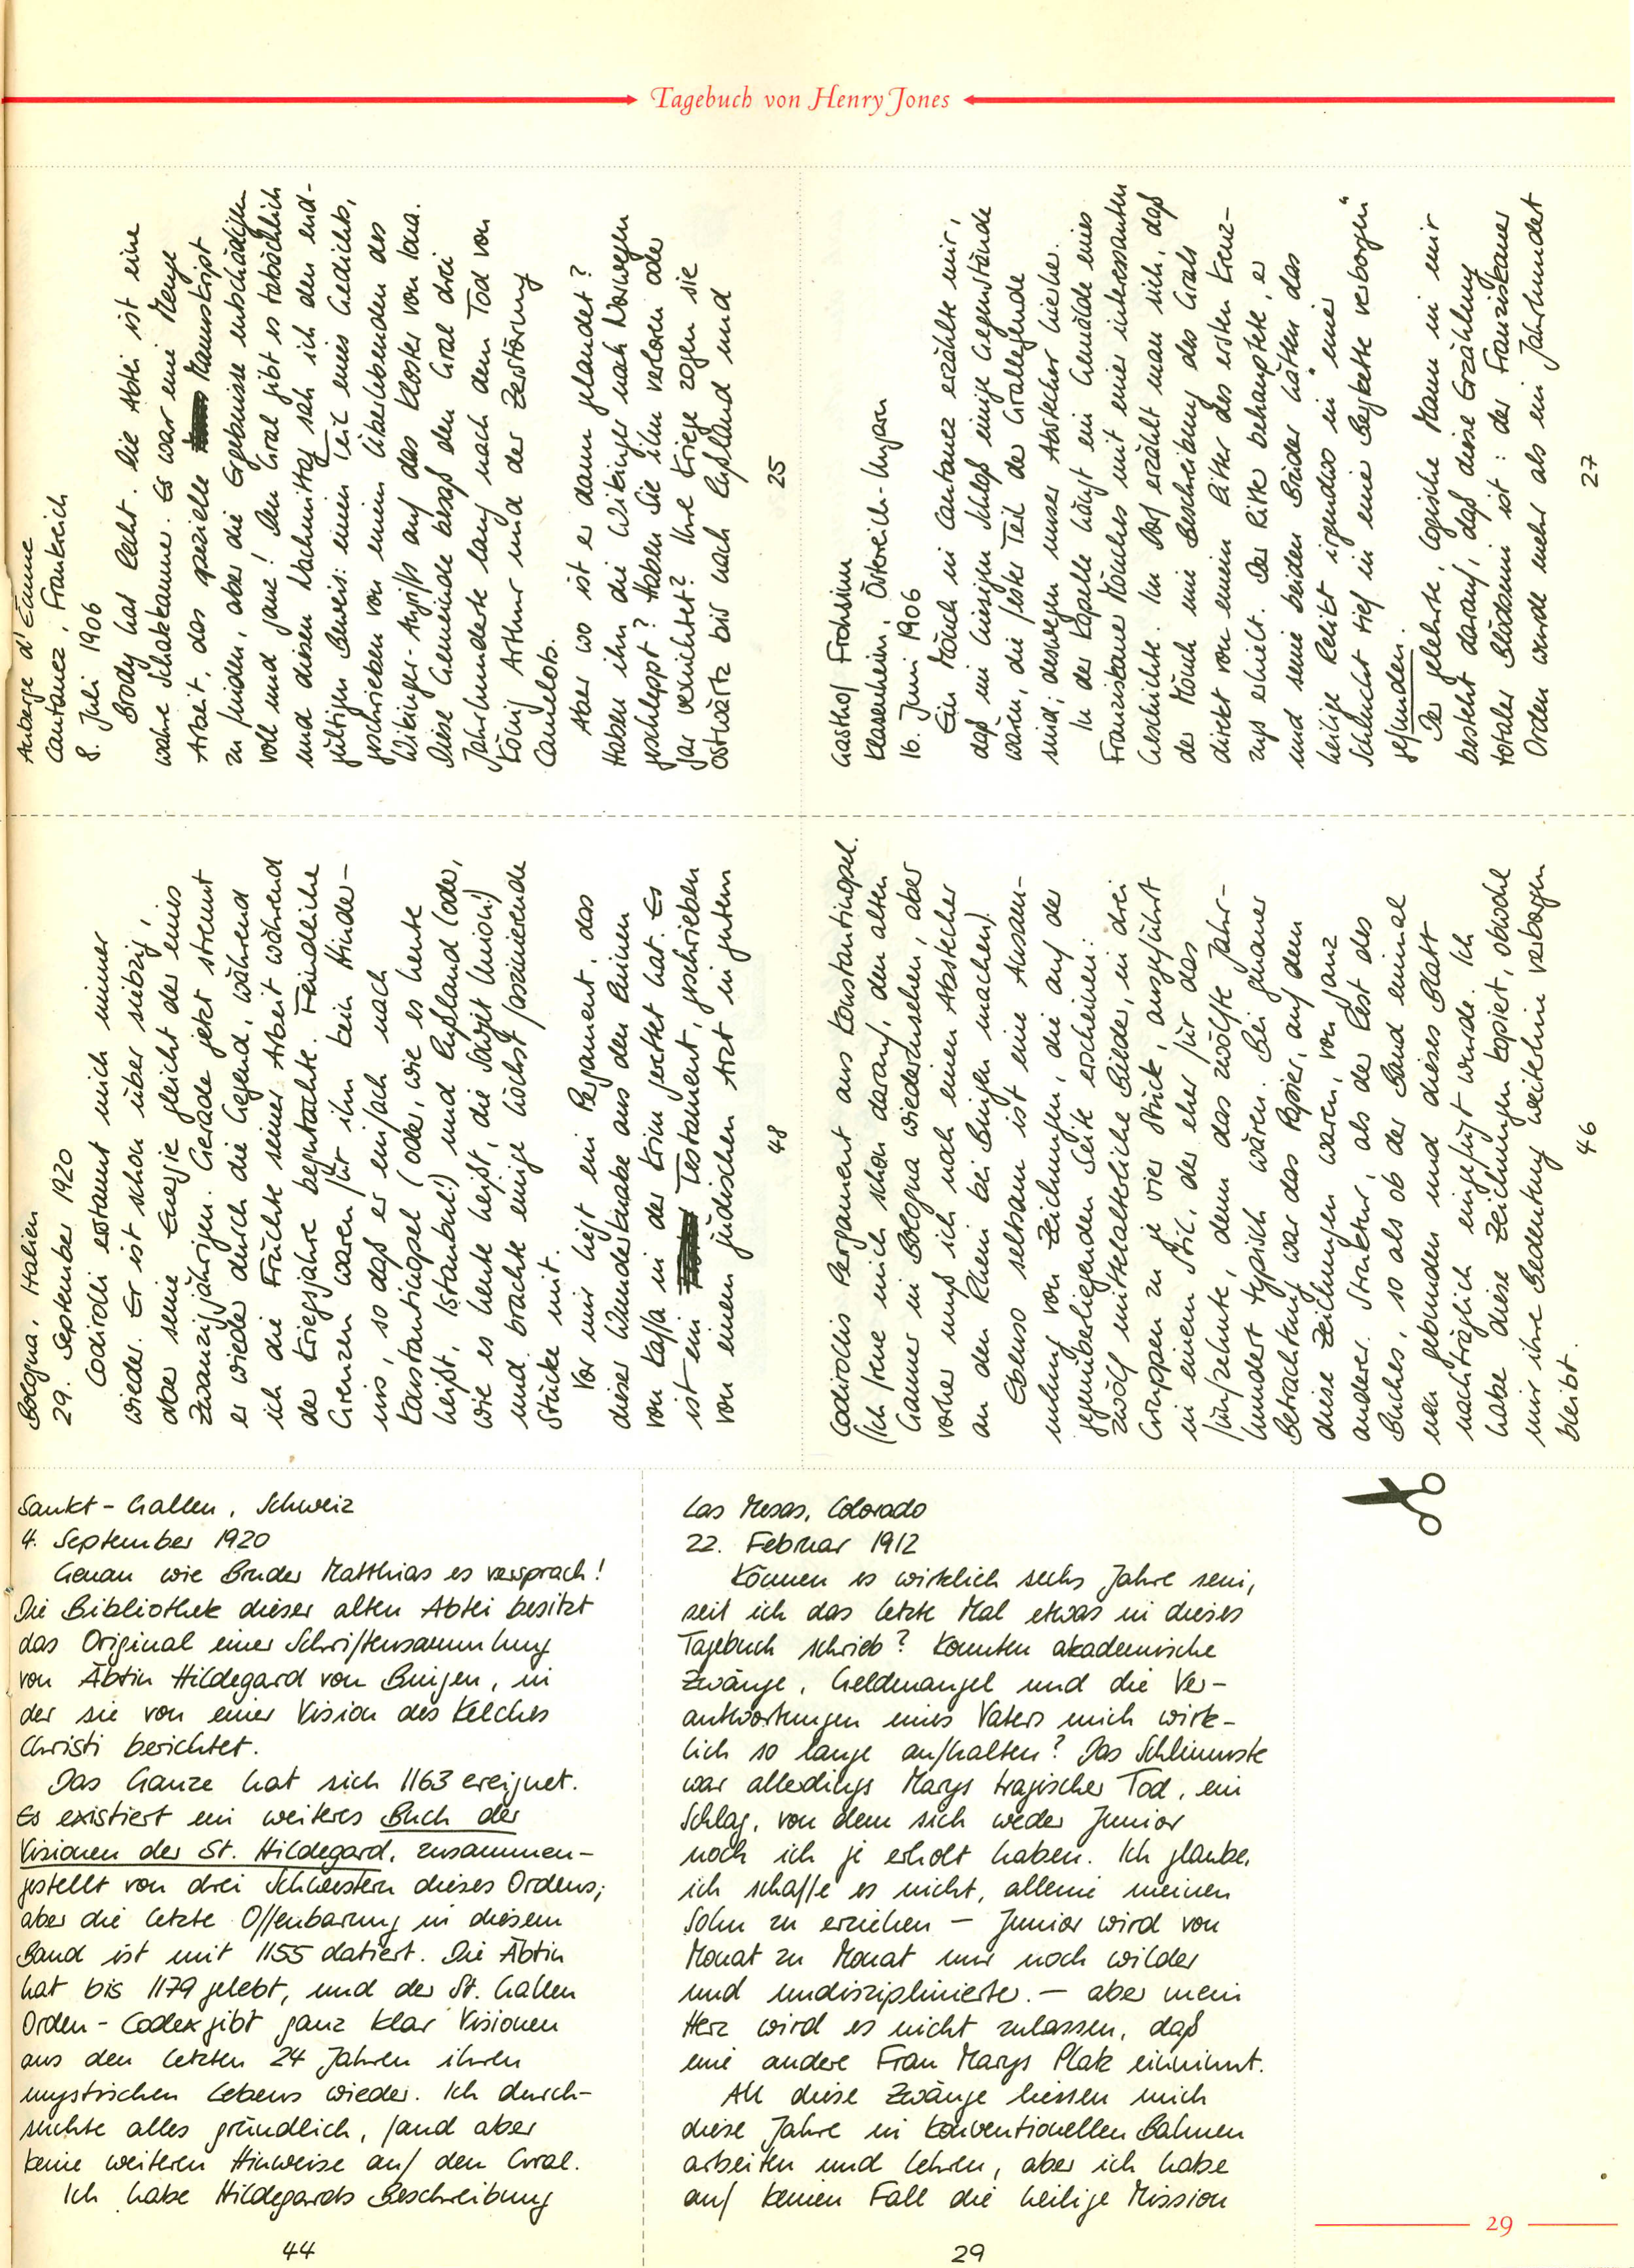 Tagebuch von Henry Jones
Auberge d'Ecume
Cantanez, Frankreich
8. Juli 1906
Brody hat Recht. Die Abtei ist eine
wahre Schatzkammer. Es war eine Menge
Arbeit, das spezielle Manuskript
zu finden, aber die Ergebnisse entschädigen
voll und ganz! Den Gral gibt es tatsächlich
und diesen Nachmittag sah ich den end-
gültigen Beweis: einen Teil eines Gedichts,
geschrieben von einem Überlebenden des
Wikinger-Angriffs auf das Kloster von Iona.
Diese Gemeinde besaß den Gral drei
Jahrhunderte lang nach dem Tod von
König Arthur und der Zerstörung
Camelots.
Aber wo ist er dann gelandet?
Haben ihn die Wikinger nach Norwegen
geschleppt? Haben sie ihn verloren oder
gar vernichtet? Ihre Kriege zogen sie
ostwärts bis nach Rußland und
25
Gasthof Frohsinn
Klasenheim, Österreich-Ungarn
16. Juni 1906
Ein Mönch in Cantanez erzählte mir,
daß im hiesigen Schloß einige Gegenstände
wären, die fester Teil der Grallegende
sind; deswegen unser Abstecher hierher.
In der Kapelle hängt ein Gemälde eines
Franziskaner Mönches mit einer interessanten
Geschichte. Im Dorf erzählt man sich, daß
der Mönch eine Beschreibung des Grals
direkt von einem Ritter des ersten Kreuz-
zugs erhielt. Der Ritter behauptete, er
und seine beiden Brüder hätten das
heilige Relikt irgendwo in "einer
Schlucht tief in eine Bergkette verborgen"
gefunden.
Der gelehrte, logische Mann in mir
besteht darauf, daß diese Erzählung
totaler Blödsinn ist: der Franziskaner
Orden wurde mehr als ein Jahrhundert
27
Bologna, Italien
29. September 1920
Codirolli erstaunt mich immer
wieder. Er ist schon über siebzig,
aber seine Energie gleicht der eines
Zwanzigjährigen. Gerade jetzt streunt
er wieder durch die Gegend, während
ich die Früchte seiner Arbeit während
der Kriegsjahre begutachte. Feindliche
Grenzen waren für ihn kein Hinder-
nis, so daß er einfach nach
Konstantinopel (oder, wie es heute
heißt, Istanbul!) und Rußland (oder,
wie es heute heißt, die Sowjet Union!)
und brachte einige höchst faszinierende
Stücke mit.
Vor mir liegt ein Pergament, das
dieser Wunderknabe aus den Ruinen
von Kaffa in der Krim gerettet hat. Es
ist ein Testament, geschrieben
von einem jüdischen Arzt in gutem
48
Codirollis Pergament aus Konstantinopel.
(Ich freue mich schon darauf, den alten
Gauner in Bologna wiederzusehen, aber
vorher muß ich noch einen Abstecher
an den Rhein bei Bingen machen).
Ebenso seltsam ist eine Ansam-
mlung von Zeichnungen, die auf der
gegenüberliegenden Seite erscheinen:
zwölf mittelalterliche Bilder, in drei
Gruppen zu je vier Stück, ausgeführt
in einem Stil, der eher für das
fünfzehnte, denn das zwölfte Jahr-
hundert typisch wären. Bei genauer
Betrachtung war das Papier, auf dem
diese Zeichnungen waren, von ganz
anderer Struktur, als der Rest des
Buches, so als ob der Band einmal
neu gebunden und dieses Blatt
nachträglich eingefügt wurde. Ich
habe diese Zeichnungen kopiert, obwohl
mir ihre Bedeutung weiterhin verborgen
bleibt.
46
Sankt-Gallen, Schweiz
4. September 1920
Genau wie Bruder Matthias es versprach!
Die Bibliothek dieser alten Abtei besitzt
das Original einer Schriftensammlung
von Äbtin Hildegard von Bingen, in
der sie von einer Vision des Kelches
Christi berichtet.
Das Ganze hat sich 1163 ereignet.
Es existiert ein weiteres Buch der
Visionen der St. Hildegard, zusammen-
gestellt von drei Schwestern dieses Ordens;
aber die letzte Offenbarung in diesem
Band ist mit 1155 datiert. Die Äbtin
hat bis 1179 gelebt, und der St. Gallen
Orden-Codex gibt ganz klar Visionen
aus den letzten 24 Jahren ihren
mystischen Lebens wieder. Ich durch-
suchte alles gründlich, fand aber
keine weiteren Hinweise auf den Gral.
Ich habe Hildegards Beschreibung
44
Las Mesas, Colorado
22. Februar 1912
Können es wirklich sechs Jahre sein,
seit ich das letzte Mal etwas in dieses
Tagebuch schrieb? Konnten akademische
Zwänge, Geldmangel und die Ver-
antwortungen eines Vaters mich wirk-
lich so lange aufhalten? Das Schlimmste
war allerdings Marys tragischer Tod, ein
Schlag, von dem sich weder Junior
noch ich je erholt haben. Ich glaube,
ich schaffe es nicht, alleine meinen
Sohn zu erziehen - Junior wird von
Monat zu Monat nur noch wilder
und undisziplinierter. - aber mein
Herz wird es nicht zulassen, daß
eine andere Frau Marys Platz einnimmt.
All diese Zwänge liessen mich
diese Jahre in konventionellen Bahnen
arbeiten und lehren, aber ich habe
auf keinen Fall die heilige Mission
29
29